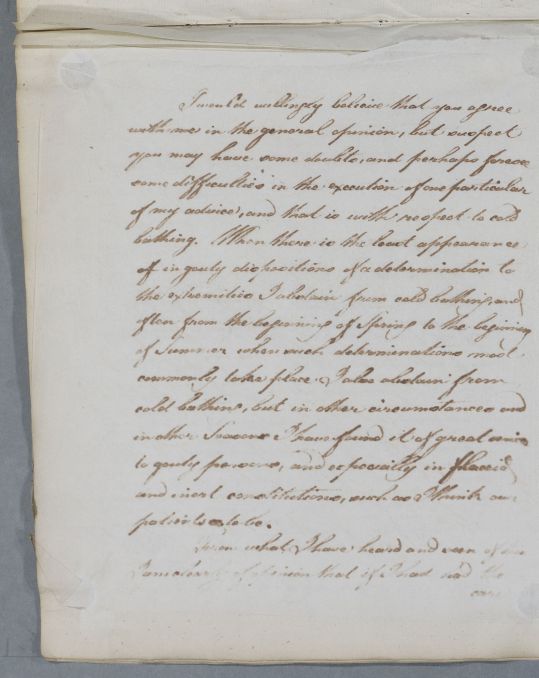 I would willingly believe that you agree
with me in the general opinion, but suspect
you may have some doubts, and perhaps foresee
some difficulties in the execution of one particular
of my advices, and that is with respect to cold
bathing. When there is the least appearance
of in gouty dispositions of a determination to
the extremities I abstain from cold bathing, and
often from the beginning of Spring to the beginning
of Summer when such determinations most
commonly takes place I also abstain from
cold bathing, but in other circumstances and
in other Seasons I have found it of great service
to gouty persons, and especially in flaccid
and inert constitutions, such as I think our
patients to be.
From what I have heard and seen of
I am clearly of opinion that if I had had the
care